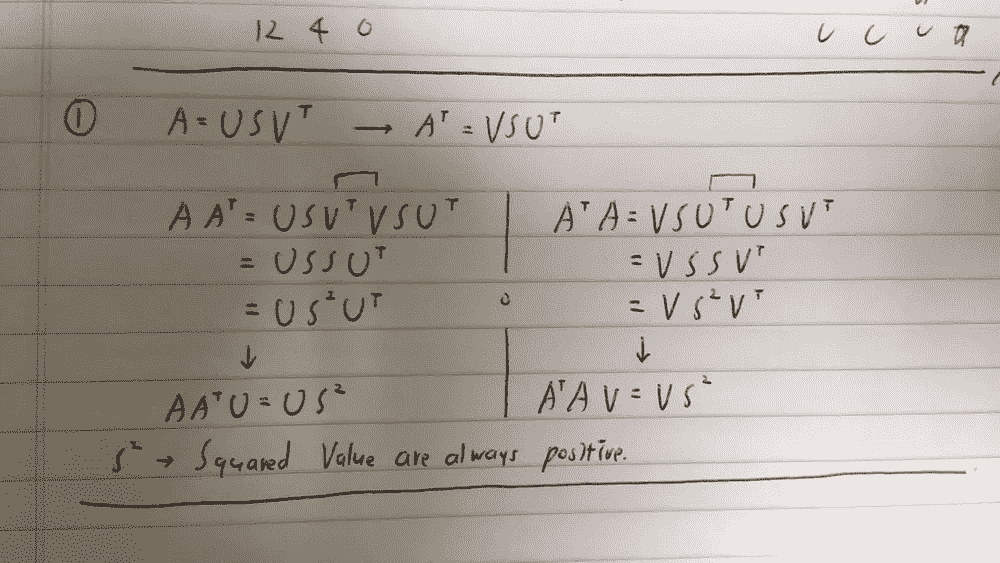 12 4 0
① A = USVᵀ → Aᵀ = VSUᵀ
AAᵀ = USVᵀVSUᵀ
= USSUᵀ
= US²Uᵀ
↓
AAᵀU = US²
AᵀA = VSUᵀUSVᵀ
= VSSVᵀ
= VS²Vᵀ
↓
AᵀAV = VS²
S² → Squared Value are always positive.